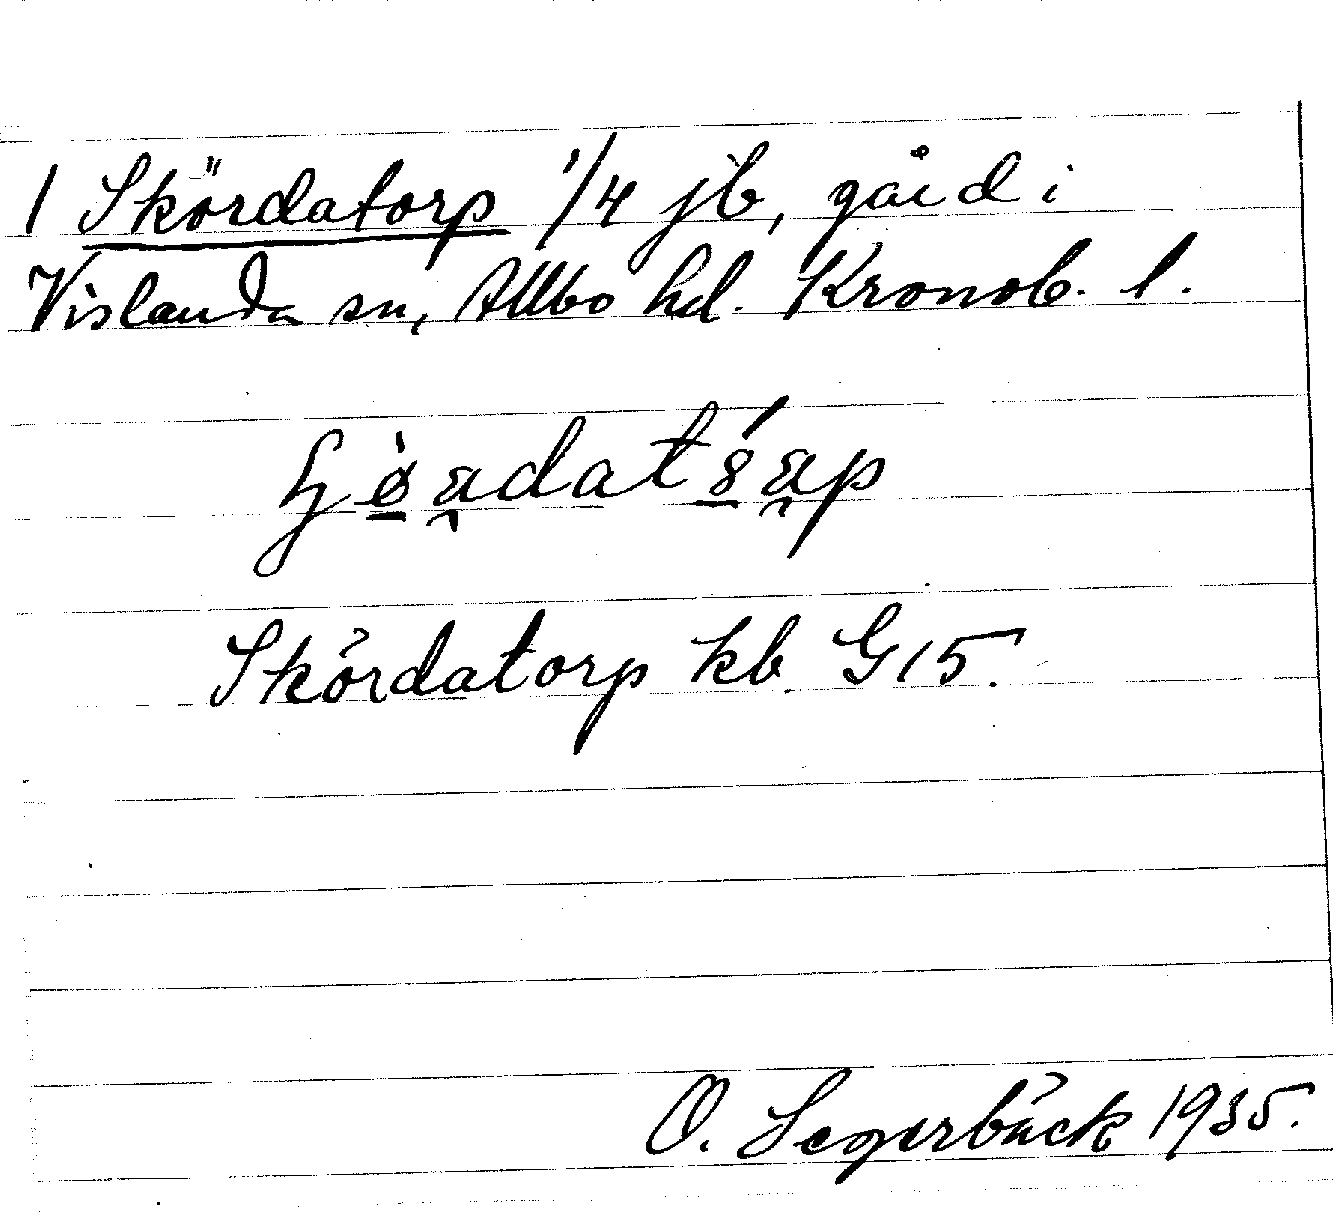 1 Skördatorp 1/4 jb, gård i
Vislanda sn, Allbo hd. Kronob. l.
Skördatorp kb G15.
O. Segerbäck 1935.